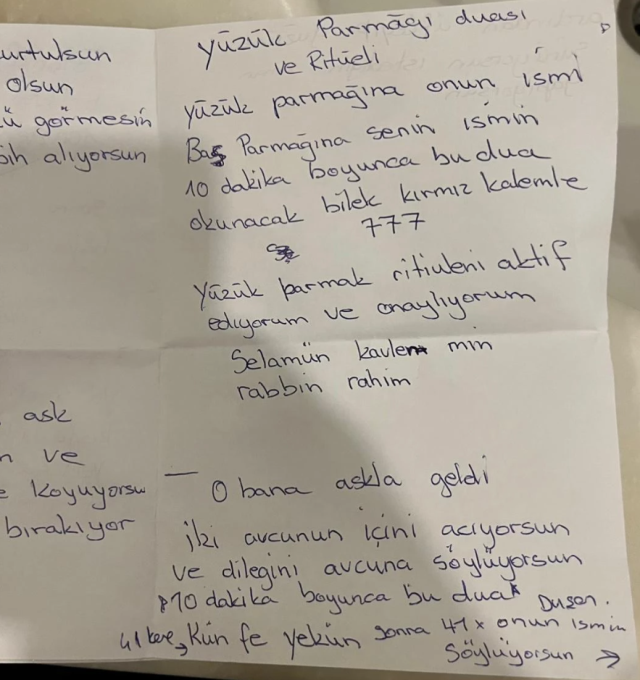 urtulsun
olsun
ü görmesin
ih alıyorsun
ask
n ve
e koyuyorsu
bırakıyor
yüzük Parmağı duası
ve Ritüeli
yüzük parmağına onun ismi
Baş Parmağına senin ismin
10 dakika boyunca bu dua
okunacak bilek kırmız kalemle
777
Yüzük parmak ritiuleni aktif
ediyorum ve onaylıyorum
Selamün kavlen min
rabbin rahim
— O bana askla geldi
iki avcunun içini acıyorsun
ve dilegini avcuna söylüyorsun
10 dakika boyunca bu dua
41 kere, Kün fe yekün sonra 41x onun ismin
söylüyorsun →